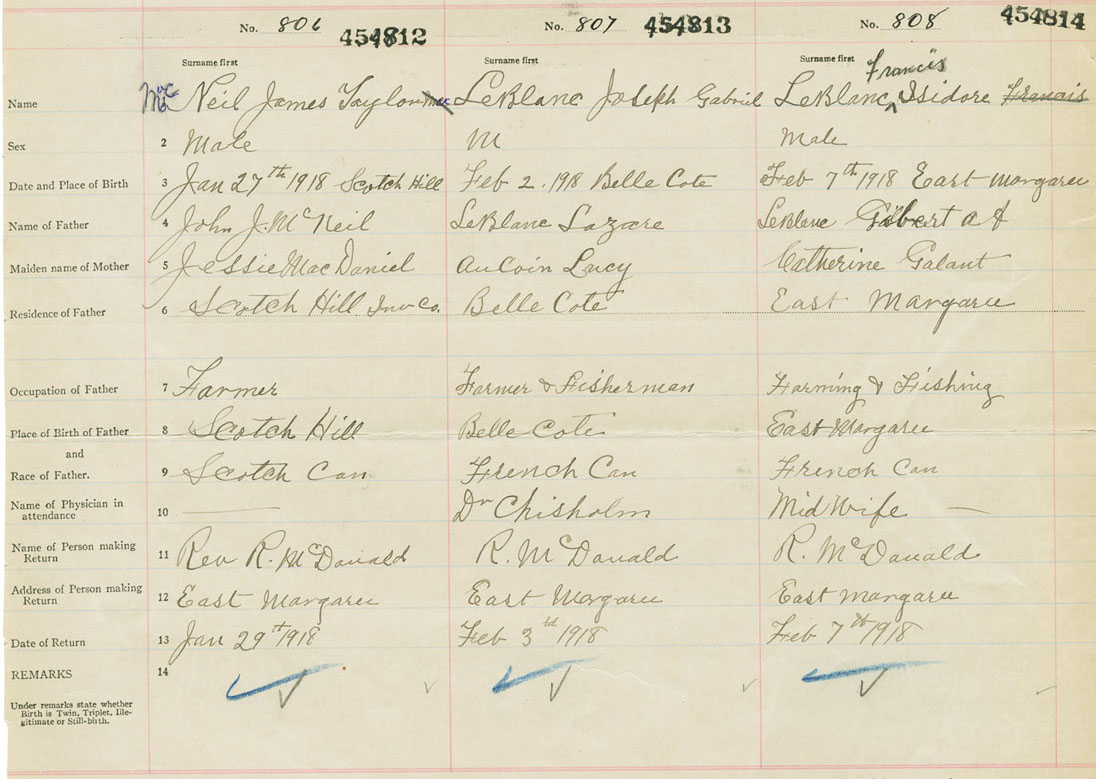 No. 806 454812 No. 807 454813 No. 808 454814
Surname first Surname first Surname first Francis
Name Mac Neil James Taylor LeBlanc Joseph Gabriel LeBlanc, Isidore Francis
Sex 2 Male M Male
Date and Place of Birth 3 Jan 27th 1918 Scotch Hill Feb 2. 1918 Belle Cote Feb 7th 1918 East Margaree
Name of Father 4 John J. McNeil LeBlanc Lazare LeBlanc Gilbert A
Maiden name of Mother 5 Jessie MacDaniel AuCoin Lucy Catherine Galant
Residence of Father 6 Scotch Hill Inv Co. Belle Cote East Margaree
Occupation of Father 7 Farmer Farmer & Fisherman Farming & Fishing
Place of Birth of Father 8 Scotch Hill Belle Cote East Margaree
and
Race of Father. 9 Scotch Can French Can French Can
Name of Physician in
attendance 10 Dr Chisholm MidWife
Name of Person making
Return 11 Rev R. McDonald R. McDonald R. McDonald
Address of Person making
Return 12 East Margaree East Margaree East Margaree
Date of Return 13 Jan 29th 1918 Feb 3rd 1918 Feb 7th 1918
REMARKS 14
Under remarks state whether
Birth is Twin, Triplet, Ille-
gitimate or Still-birth.